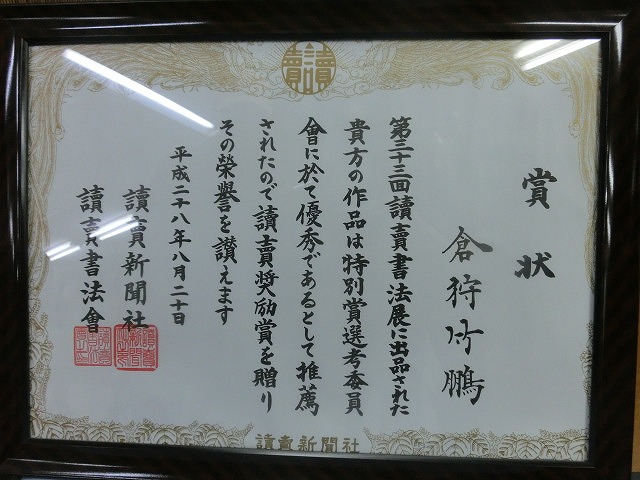 賞状
倉狩竹鵬
第三十三回讀賣書法展に出品された
貴方の作品は特別賞選考委員
會に於て優秀であるとして推薦
されたので讀賣奨励賞を贈り
その榮譽を讃えます
平成二十八年八月二十日
讀賣新聞社
讀賣書法會
讀賣新聞社